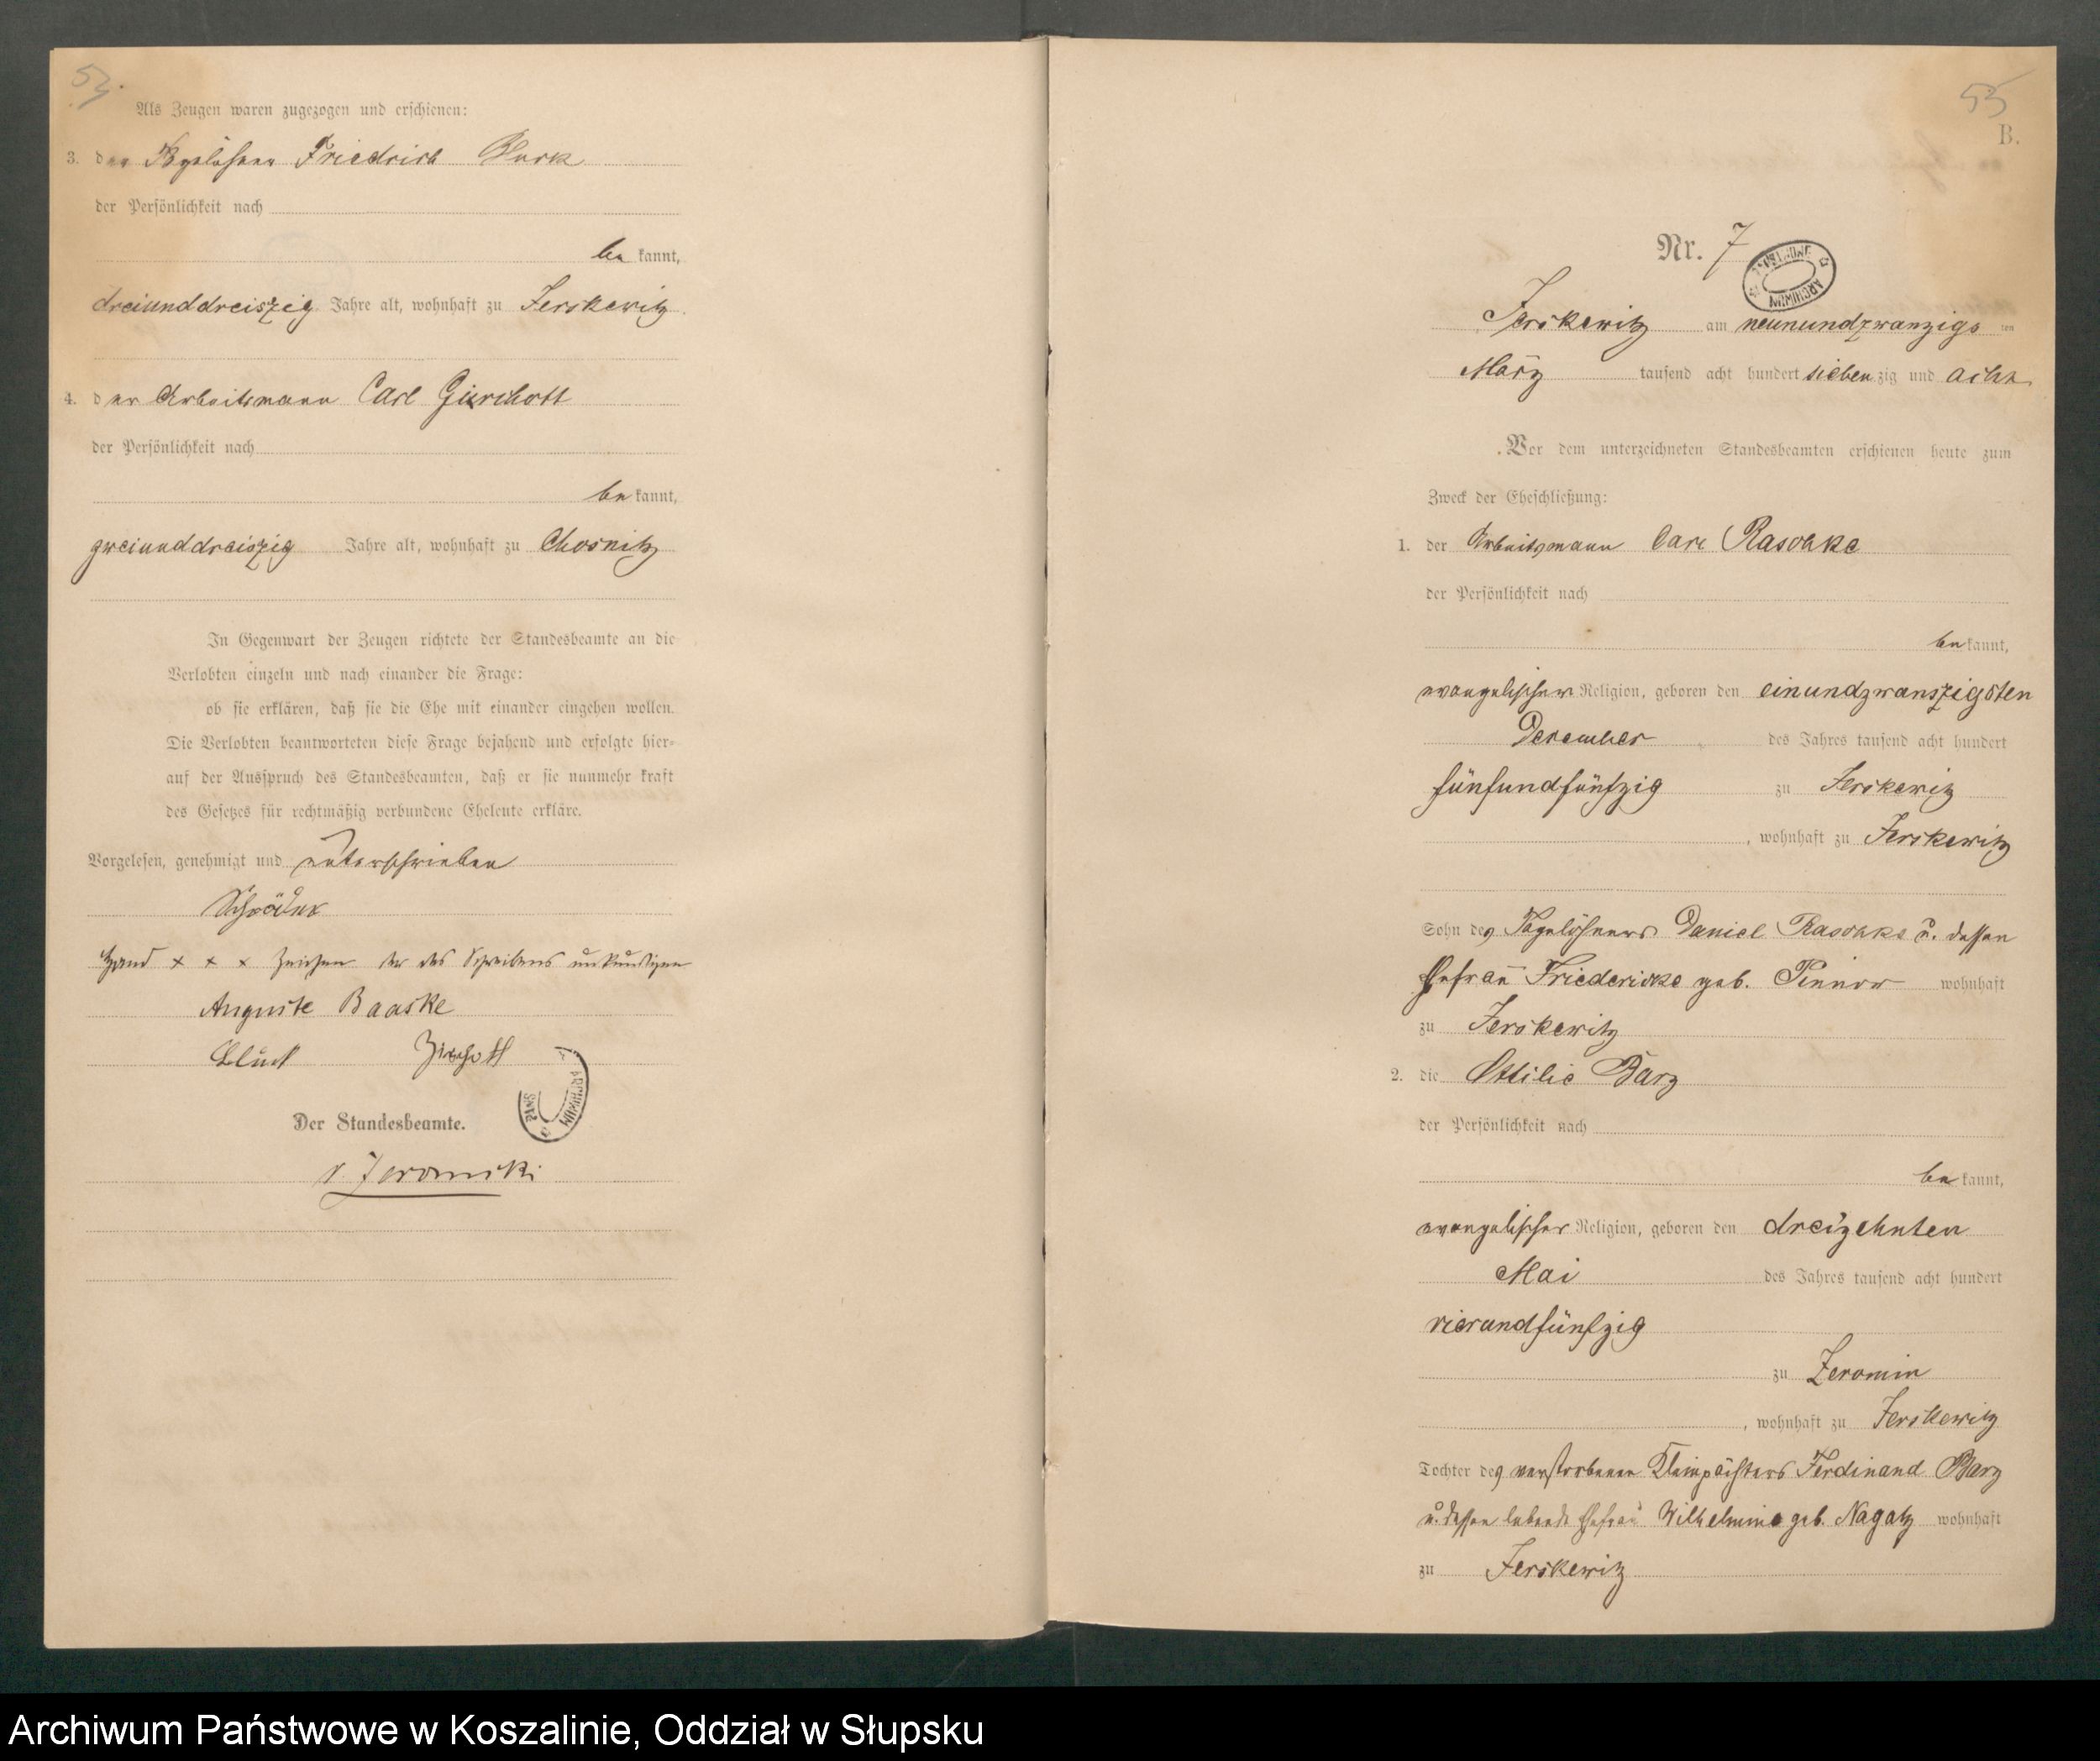 53.
Als Zeugen waren zugezogen und erschienen:
3. der Tagelöhner Friedrich
der Persönlichkeit nach
be kannt,
dreiunddreiszig Jahre alt, wohnhaft zu Jerskewitz.
4. der Arbeitsmann Carl
der Persönlichkeit nach
be kannt,
zweiunddreiszig Jahre alt, wohnhaft zu Chosnitz
In Gegenwart der Zeugen richtete der Standesbeamte an die
Verlobten einzeln und nach einander die Frage:
ob sie erklären, daß sie die Ehe mit einander eingehen wollen.
Die Verlobten beantworteten diese Frage bejahend und erfolgte hier-
auf der Ausspruch des Standesbeamten, daß er sie nunmehr kraft
des Gesetzes für rechtmäßig verbundene Eheleute erkläre.
Vorgelesen, genehmigt und unterschrieben
Hand x x x Zeichen der des Schreibens unkundigen
Auguste Baaske
Der Standesbeamte.
55
B.
Nr. 7
Jerskewitz am neunundzwanzigs ten
März tausend acht hundert sieben zig und acht
Vor dem unterzeichneten Standesbeamten erschienen heute zum
Zweck der Eheschließung:
1. der Arbeitsmann Carl Raschke
der Persönlichkeit nach
be kannt,
evangelischer Religion, geboren den einundzwanszigsten
December des Jahres tausend acht hundert
fünfundfünfzig zu Jerskewitz
, wohnhaft zu Jerskewitz
Sohn des Tagelöhners Daniel Raschke u. dessen
Ehefrau Friedericke geb. Pinnow wohnhaft
zu Jerskewitz
2. die Ottilie Barz
der Persönlichkeit nach
be kannt,
evangelischer Religion, geboren den dreizehnten
Mai des Jahres tausend acht hundert
vierundfünfzig
zu Zeromin
, wohnhaft zu Jerskewitz
Tochter des verstorbenen Ferdinand Barz
u. dessen lebende Ehefrau Wilhelmine geb. Nagatz wohnhaft
zu Jerskewitz
Archiwum Państwowe w Koszalinie, Oddział w Słupsku